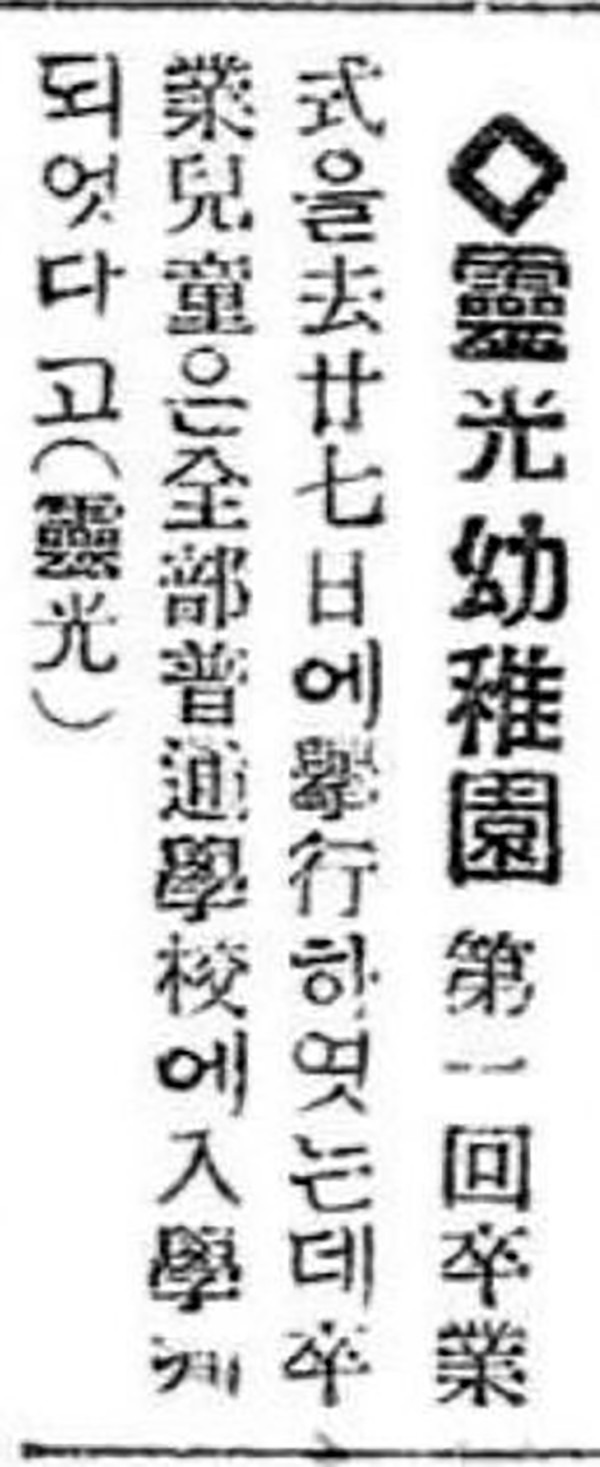 ◇靈光幼稚園 第一回卒業
式을去廿七日에擧行하엿는데卒
業兒童은全部普通學校에入學케
되엿다고(靈光)